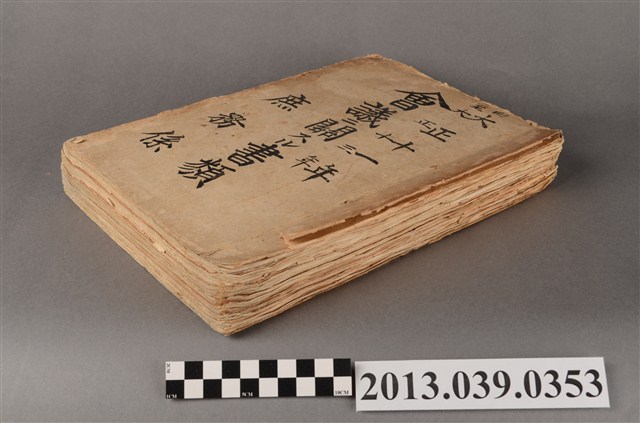 大正十一年
會議關スル書類
庶務係
2013.039.0353
0CM
1CM
5CM
10CM